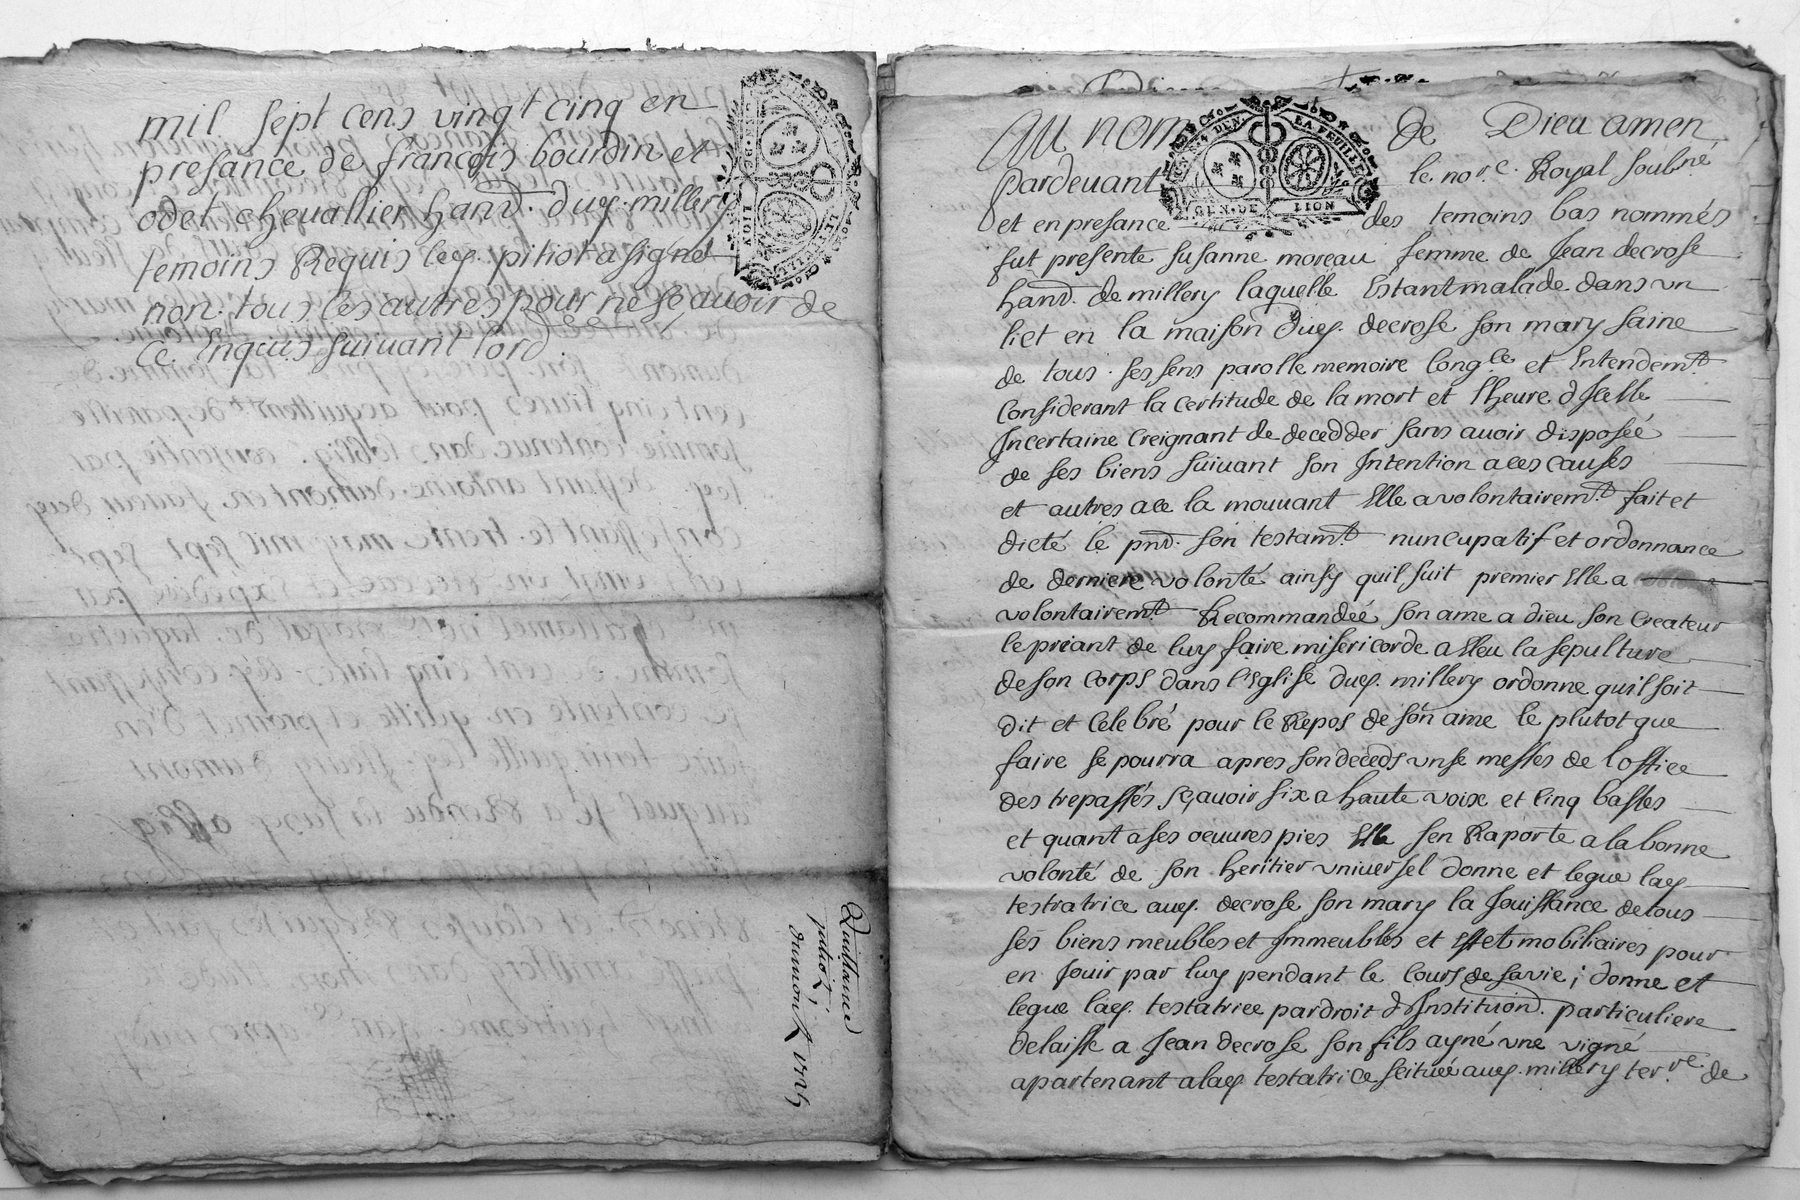 mil sept cens vingt cinq en
presance de françois bourdin et
odet chevallier hand. dud. millery
temoins Requis led. pitiot a signé
non tous les autres pour ne sçavoir de
ce Enquis suivant lord.
Quittance
pitiot,
dumont
Au nom de Dieu amen
pardevant le nore. Royal soubné
GEN. DE LION
LA FEUILLE
et en presance des temoins bas nommés
fut presente susanne moreau femme de Jean decrose
hand. de millery laquelle Estant malade dans un
lict en la maison dud. decrose son mary saine
de tous ses sens parolle memoire Congce et Entendemt
Considerant la certitude de la mort et Lheure dIcelle
Incertaine Creignant de decedder sans avoir disposée
de ses biens suivant son Intention a ces causes
et autres a ce la mouvant Elle a volontairemt fait et
dicté le pnt. son testamt nuncupatif et ordonnance
de derniere volonté ainsy quil suit premier Elle a
volontairemt Recommandéé son ame a dieu son Createur
le priant de luy faire misericorde a Eleu la sepulture
de son corps dans l'Eglise dud. millery ordonne quil soit
dit et Celebré pour le Repos de son ame le plutot que
faire se pourra apres son deceds unse messes de loffice
des trepassés sçavoir six a haute voix et Cinq basses
et quant a ses oeuvres pies Elle sen Raporte a la bonne
volonté de son heritier universel donne et legue lad.
testratrice aud. decrose son mary la Jouissance de tous
ses biens meubles et Immeubles et Effet mobiliaires pour
en Jouir par luy pendant le Cours de sa vie; donne et
legue lad. testatrice par droit d'Instituon. particuliere
delaisse a Jean decrose son fils ayné une vigne
apartenant a lad. testatrice scituéé aud. millery terre. de